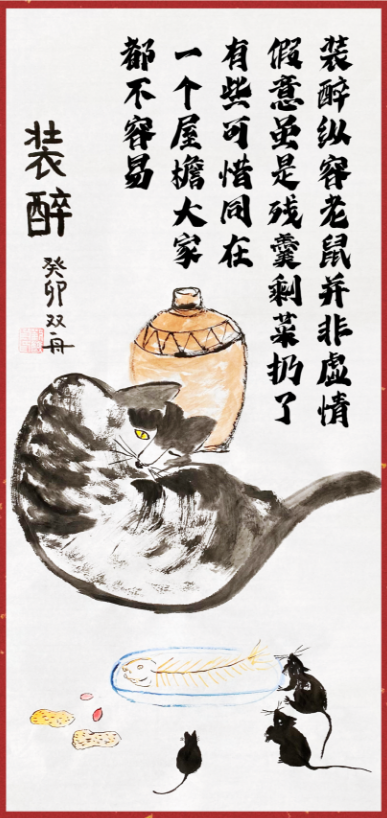 装醉纵容老鼠并非虚情
假意虽是残羹剩菜扔了
有些可惜同在
一个屋檐大家
都不容易
装醉
癸卯双舟